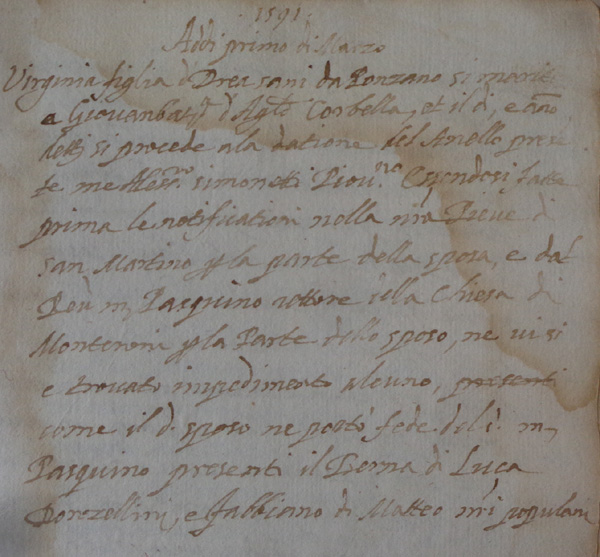 1591.
Addi primo di Marzo
Virginia figlia d Drea sani da Ponzano si marita
a Giovanbatta d Agto Corbella, et il di, e año
detti si procede ala datione del Anello presẽ
te me simonetti Piovno. Essendosi fatte
prima le notificationi nella nrã Pieve di
san Martino p la parte della sposa, e dal
Rev m, Pasquino rettore della Chiesa di
p la Parte dello sposo, ne vi si
e trovato impedimento alcuno, presenti
come il d. sposo ne portò fede del d. m,
Pasquino presenti il di Luca
e Fabbiano di Matteo nrĩ populani